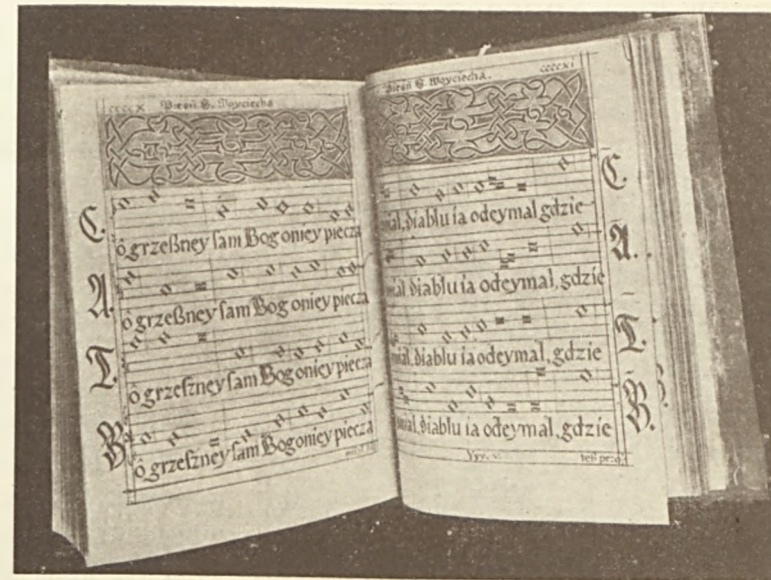 ccccx Pieśń S. Woyciecha
C.
ô grzeßney sam Bog oniey piecza
A.
ô grzeßney sam Bog oniey piecza
T.
ô grzeszney sam Bog oniey piecza
B.
ô grzeszney sam Bog oniey piecza
Pieśń S. Woyciecha. ccccxi
miał, diabłu ia odeymał, gdzie
C.
miał, diabłu ia odeymał, gdzie
A.
miał, diabłu ia odeymał, gdzie
T.
miał, diabłu ia odeymał, gdzie
B.